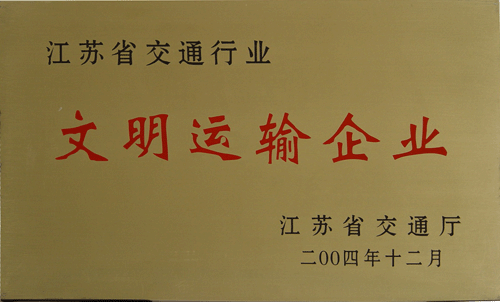 江苏省交通行业
文明运输企业
江苏省交通厅
二00四年十二月